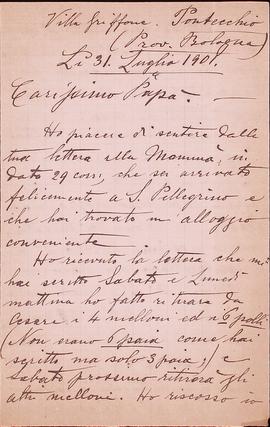 Villa Griffone. Pontecchio
(Prov. Bologna)
Li 31. Luglio 1901.
Carissimo Papà. —
Ho piacere di sentire dalla
tua lettera alla Mamma, in
data 29 corr, che sei arrivato
felicemente a S. Pellegrino e
che hai trovato un alloggio
conveniente
Ho ricevuto la lettera che mi
hai scritto Sabato e Lunedì
mattina ho fatto ritirare da
Cesare i 4 melloni ed i 6 polli
(Non erano 6 paia come hai
scritto ma solo 3 paia;) e
Sabato prossimo ritirerà gli
altri melloni. Ho riscosso io